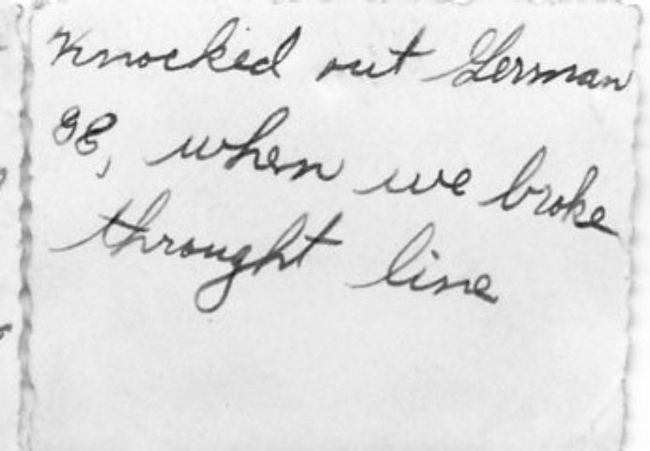 Knocked out German
88, when we broke
throught line